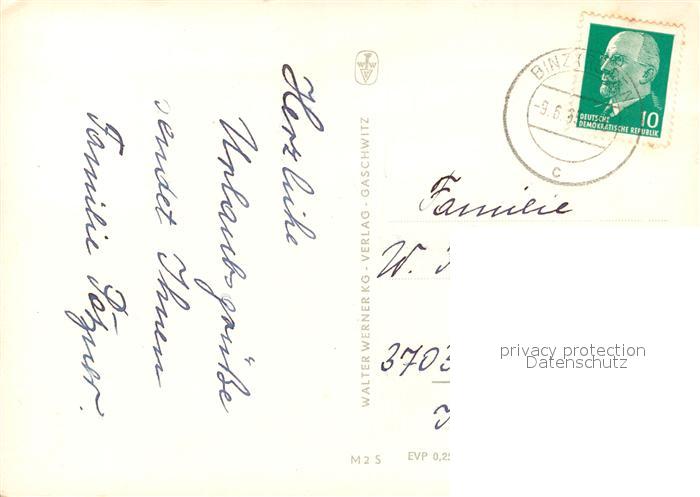 Herzliche
Urlaubsgrüße
sendet Ihnen
Familie
WALTER WERNER KG - VERLAG - GASCHWITZ
M 2 S
EVP 0,25
BINZ
-9.6.
c
10
DEUTSCHE
DEMOKRATISCHE REPUBLIK
Familie
W.
3703
privacy protection
Datenschutz